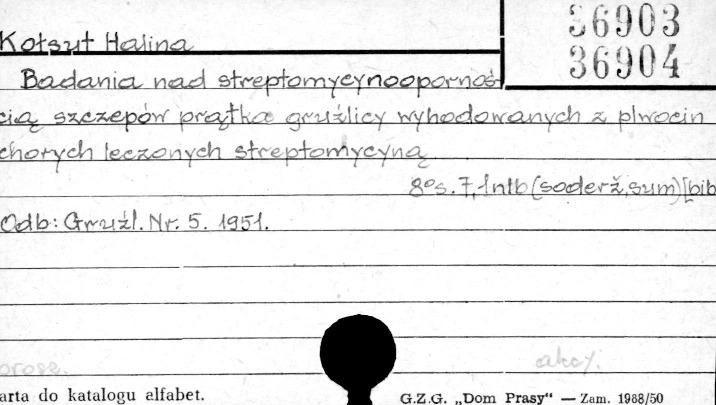 Kołsut Halina
36903
36904
Badania nad streptomycynoopornoś
cią szczepów prątka gruźlicy wyhodowanych z plwocin
chorych leczonych streptomycyną
8°s. 7, 1ntb (soderž, sum) [bib
Odb: Gruźl. Nr. 5. 1951.
akcy.
arta do katalogu alfabet.
G.Z.G. „Dom Prasy“ — Zam. 1988/50